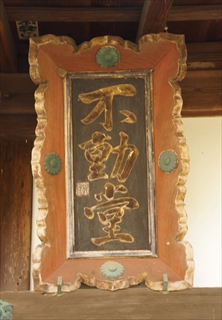 不動堂